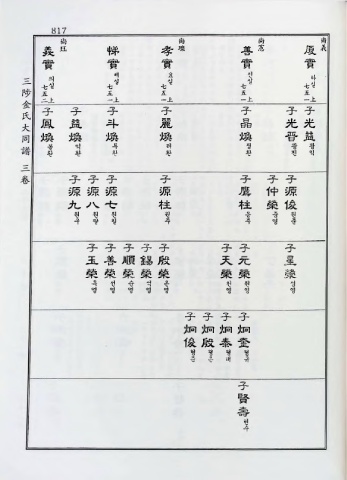 817
三陟金氏大同譜 三卷
尚義
厦實 하실
上七五一
尚寬
善實 선실
上七五一
孝實 효실
上七五一
悌實 제실
上七五一
尚玨
義實 의실
上七五二
子 光益 광익
子 光晉 광진
子 晶煥 정환
子 麗煥 려환
子 斗煥 두환
子 益煥 익환
子 鳳煥 봉환
子 源俊 원준
子 仲榮 중영
子 鷹柱 응주
子 源柱 원주
子 源七 원칠
子 源八 원팔
子 源九 원구
子 星榮 성영
子 元榮 원영
子 天榮 천영
子 殷榮 은영
子 錫榮 석영
子 順榮 순영
子 善榮 선영
子 玉榮 옥영
子 炯奎 형규
子 炯泰 형태
子 炯殷 형은
子 炯俊 형준
子 賢壽 현수